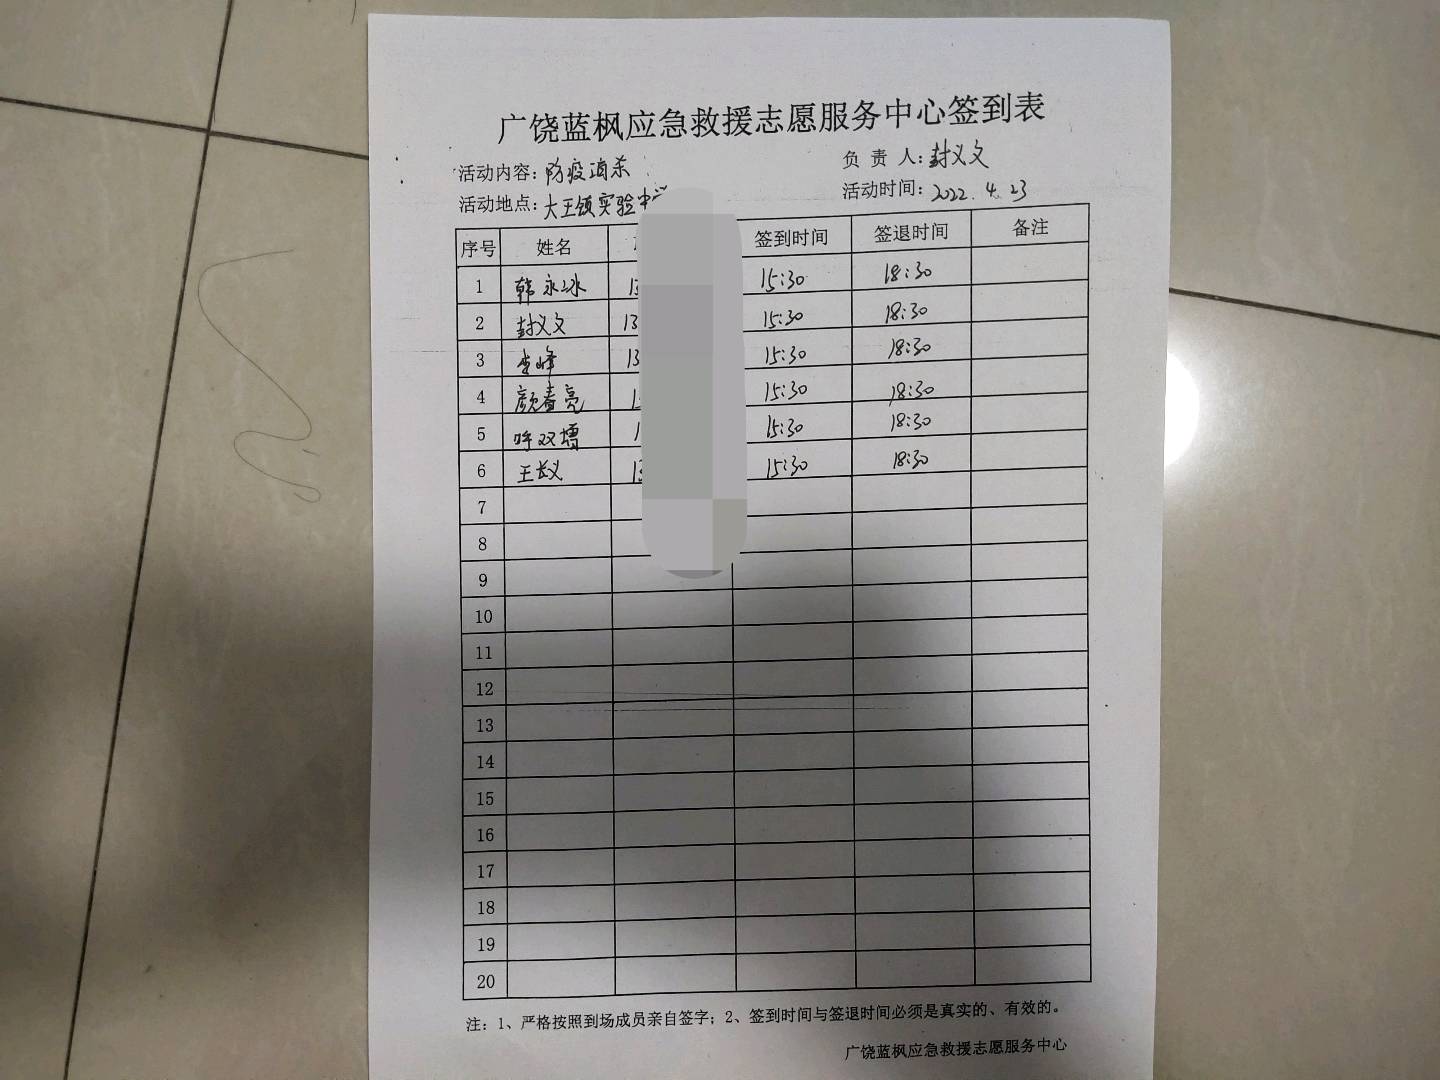 广饶蓝枫应急救援志愿服务中心签到表
活动内容：防疫消杀 负 责 人：封义文
活动地点：大王镇实验中学 活动时间：2022.4.23
序号 姓名 签到时间 签退时间 备注
1 韩永冰 15:30 18:30
2 封义文 13 15:30 18:30
3 李峰 13 15:30 18:30
4 颜春亮 15:30 18:30
5 呼双增 1 15:30 18:30
6 王长义 13 15:30 18:30
7
8
9
10
11
12
13
14
15
16
17
18
19
20
注：1、严格按照到场成员亲自签字；2、签到时间与签退时间必须是真实的、有效的。
广饶蓝枫应急救援志愿服务中心